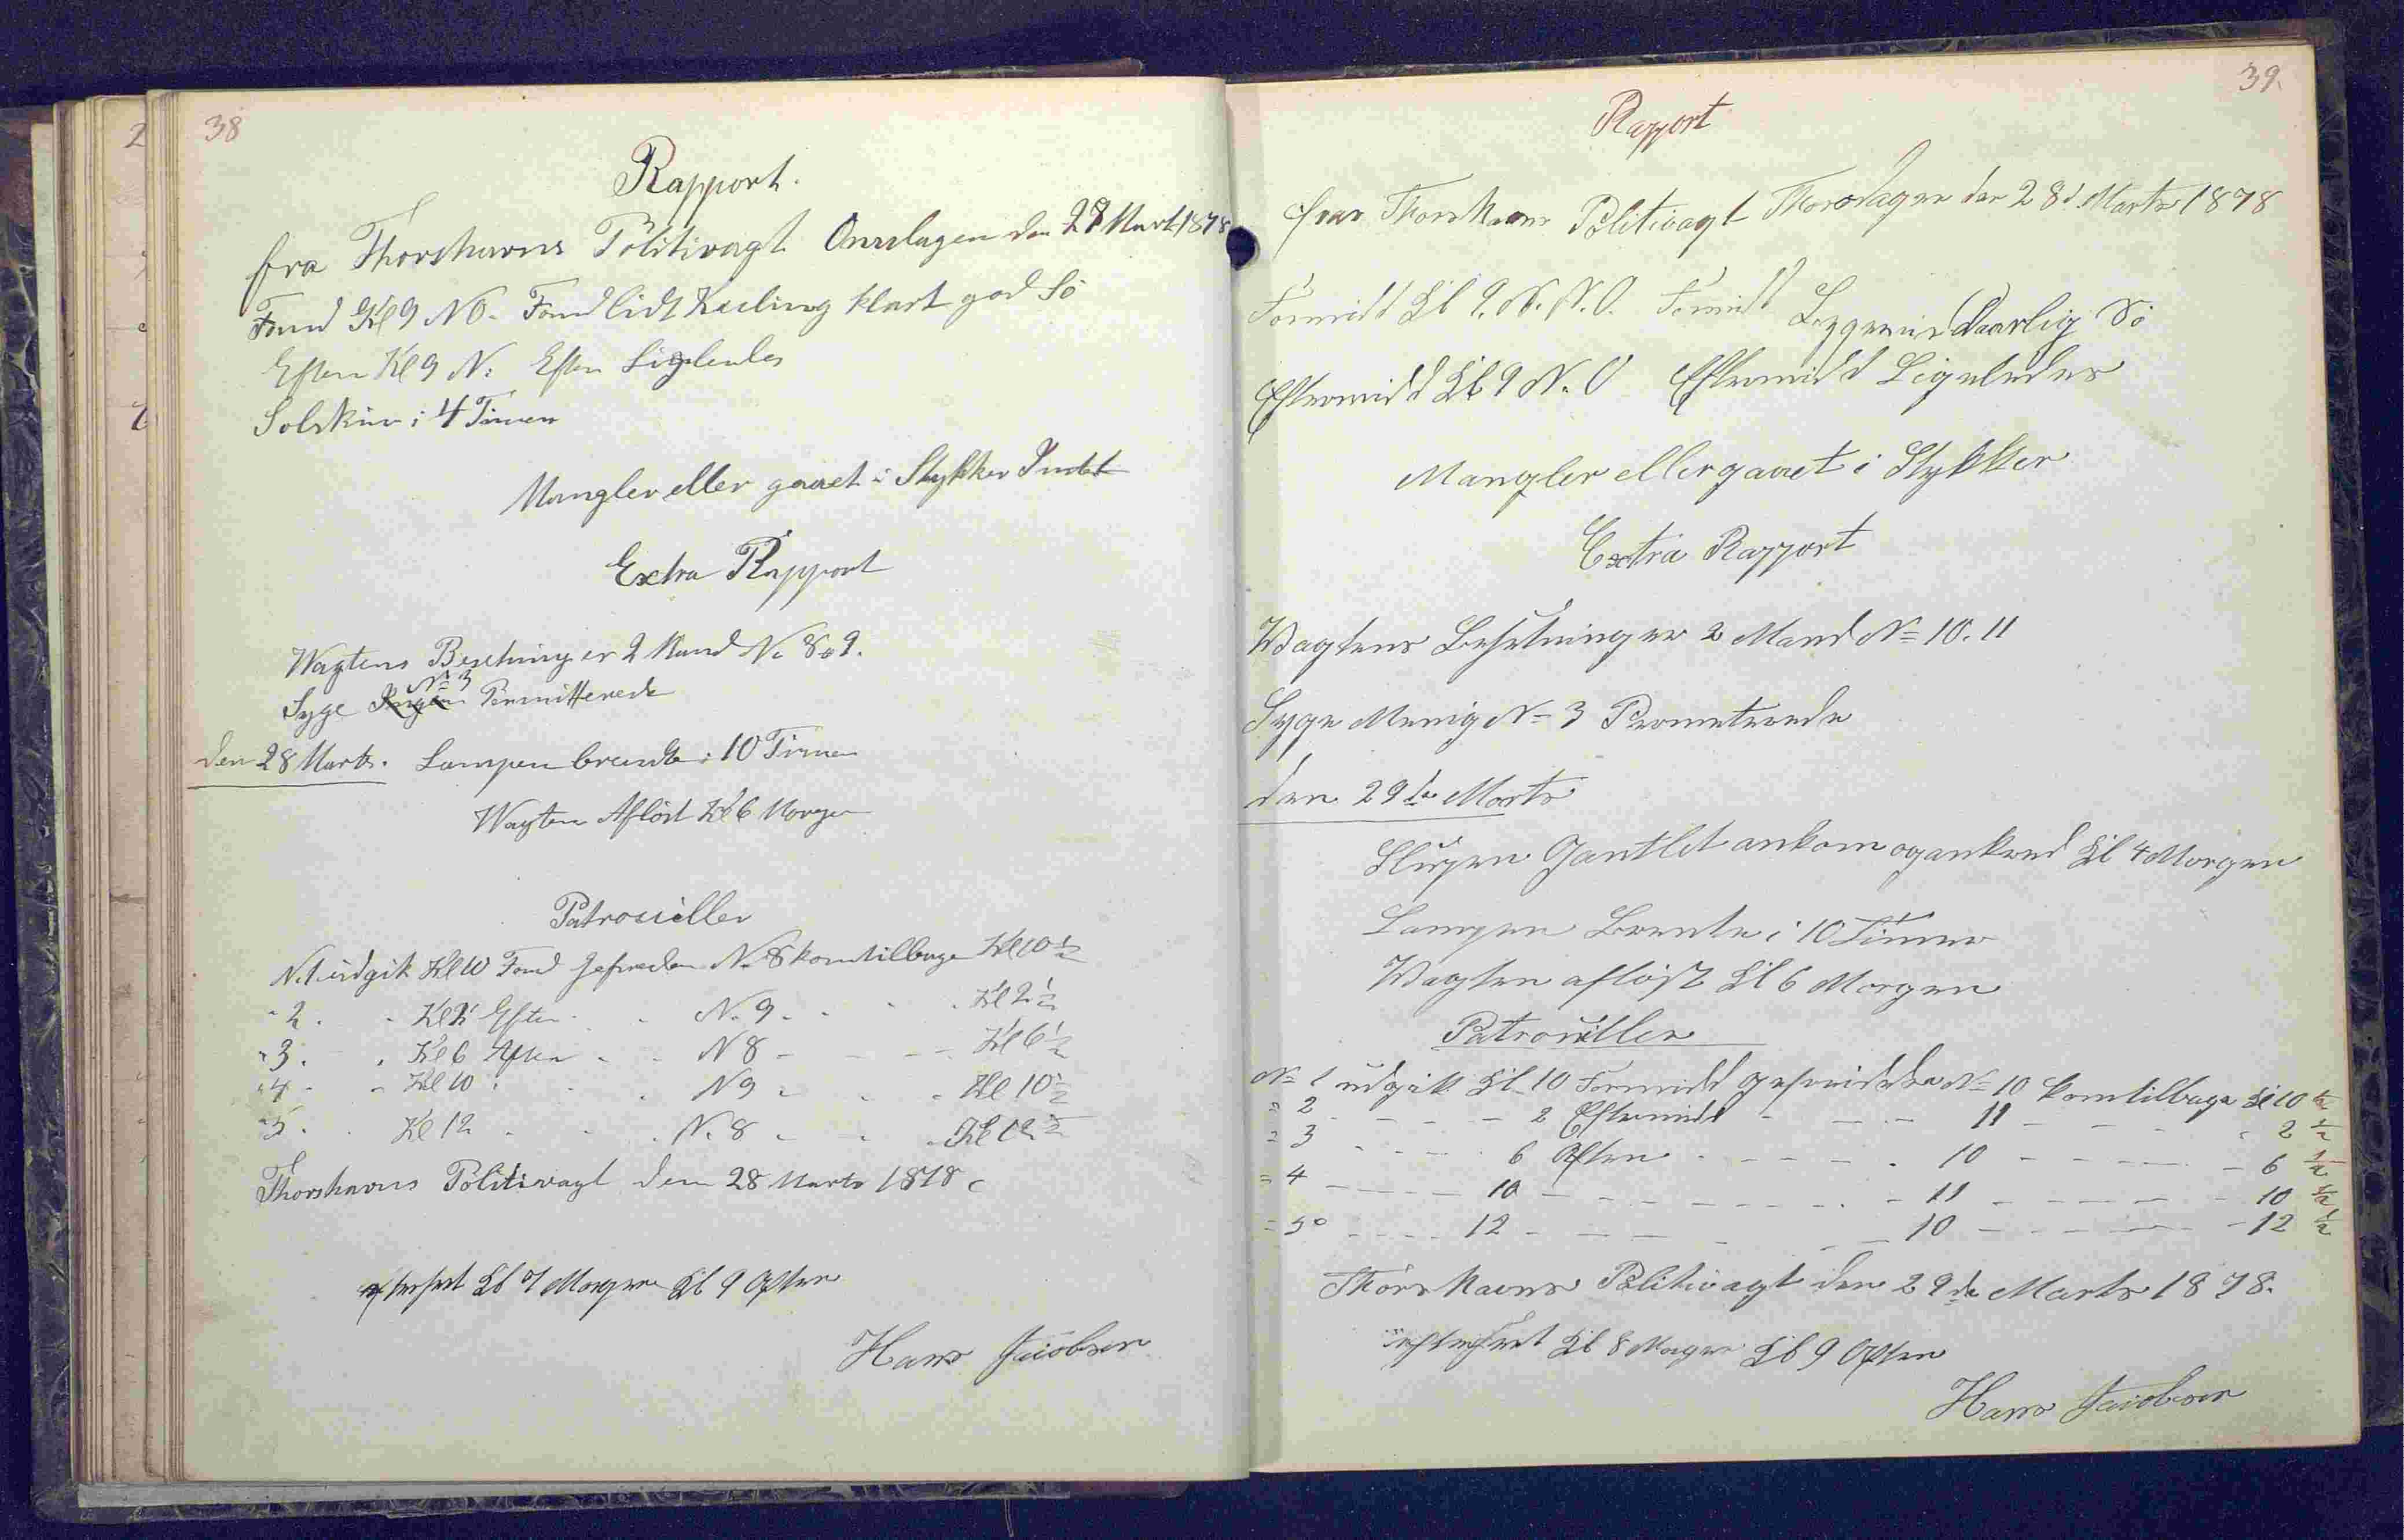 38
Rapport.
fra Thorshavns Politivagt Onsdagen den 27 Marts 1878
Formd Kl 9 NO. Formd lidt Kuling klart god Sö
Efterm Kl 9 N: Efterm Ligeledes
Solskin i 4 Timer
Mangler eller gaaet i Stykker Intet
Extra Rapport
Wagtens Besetning er 2 Mand No 8 o 9.
Syge No 3 Permitterede
den 28 Marts. Lampen brendte i 10 Timer
Wagten Aflöst Kl 6 Morgen
Patrouiller
N. 1 udgik Kl 10 Formd Gefreden No 8 kom tilbage Kl 10 1/2
" 2 . . Kl 2 Efterm . . N. 9 . . . Kl 2 1/2
" 3 . . Kl 6 Aften . . N 8 - - - Kl 6 1/2
" 4 - " Kl 10 . . . N 9 . . . Kl 10 1/2
" 5 . . Kl 12 . . . N. 8 . . . Kl 12 1/2
Thorshavns Politivagt den 28 Marts 1878
efterseet Kl 7 Morgen Kl 9 Aften
Hans Jacobsen
39.
Rapport
fra Thorshavns Politivagt Thorsdagen den 28d Marts 1878
Formidd Kl 9. N. N. O. Formidd Byggevind Daarlig Sö
Eftermidd Kl 9 N. O Eftermidd Ligeledes
Mangler eller gaaet i Stykker
Extra Rapport
Wagtens Besetning er 2 Mand No 10. 11
Syge Menig No 3 Prometerede
den 29de Marts
Slupen Gantlet ankom og ankred Kl 4 Morgen
Lampen Brente i 10 Timer
Wagten aflöst Kl 6 Morgen
Patrouiller
No 1 udgik Kl 10 Formidd gefreidden No 10 kom tilbage Kl 10 1/2
" 2 - - - - 2 Eftermidd - - - 11 - - - - 2 1/2
" 3 - - - - 6 Aften - - - - 10 - - - - 6 1/2
" 4 - - - - 10 - - - - - - 11 - - - - 10 1/2
" 5 - - - - 12 - - - - - - 10 - - - - 12 1/2
Thorshavns Politivagt den 29de Marts 1878.
efterseet Kl 8 Morgen Kl 9 Aften
Hans Jacobsen